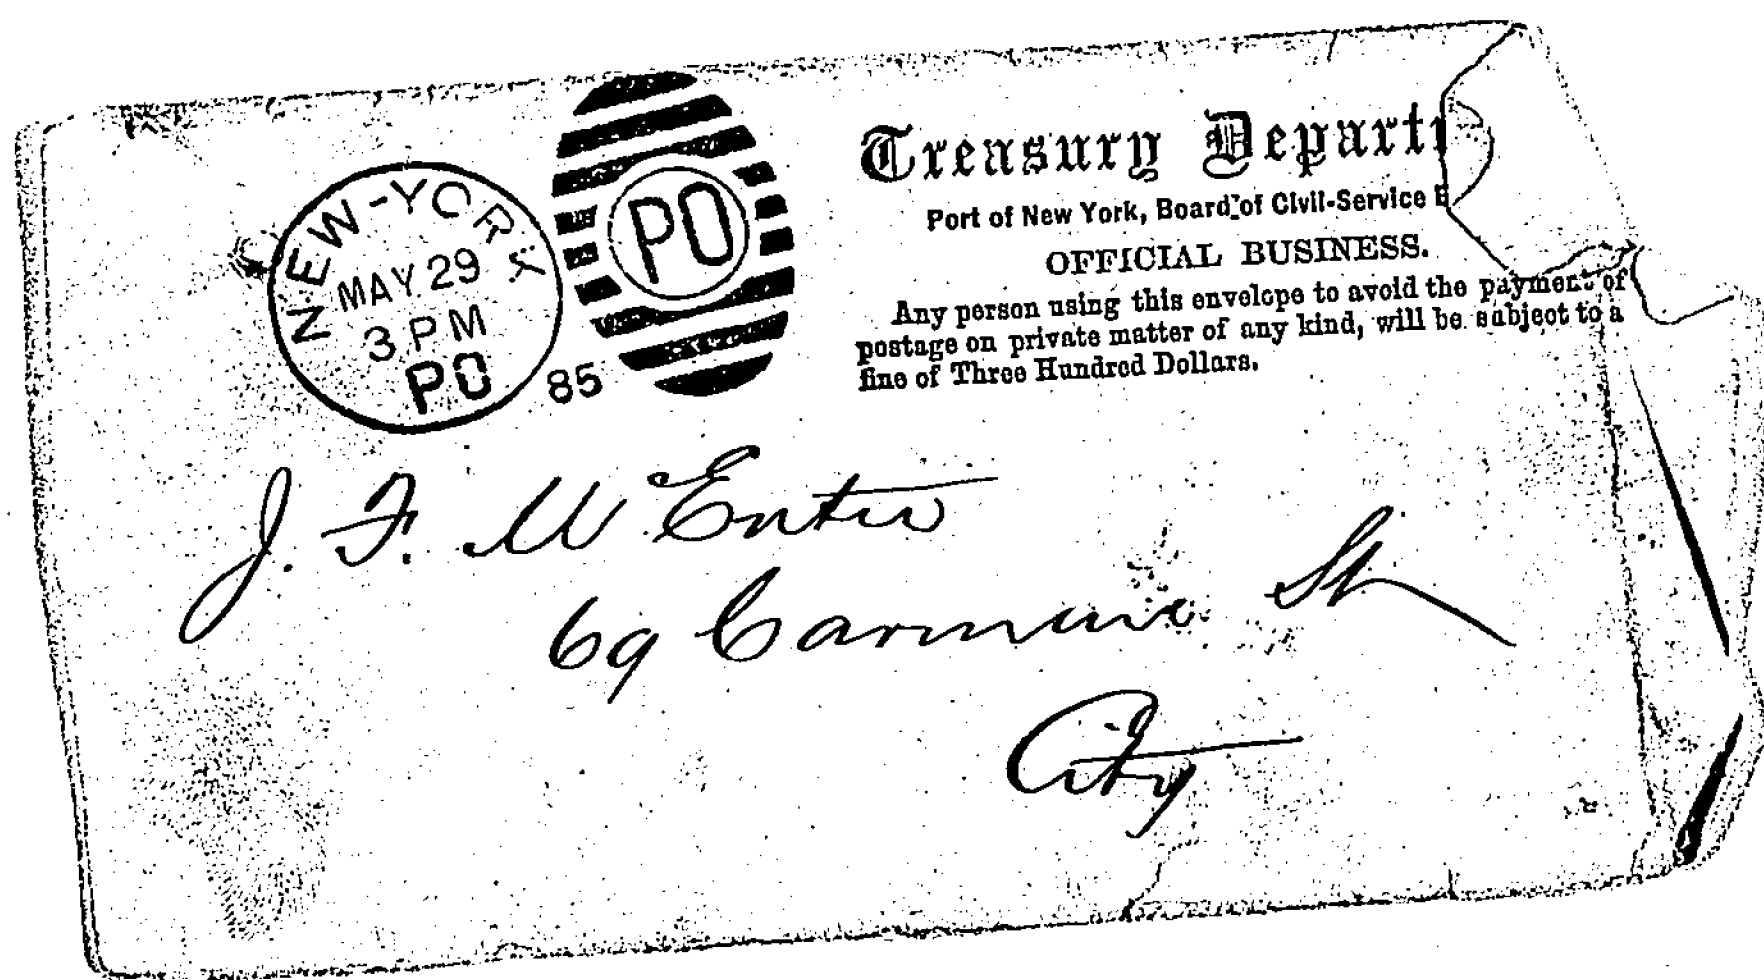 NEW-YORK
MAY 29
3 PM
PO
85
PO
Treasury Depart
Port of New York, Board of Civil-Service
OFFICIAL BUSINESS.
Any person using this envelope to avoid the payment of
postage on private matter of any kind, will be subject to a
fine of Three Hundred Dollars.
J. F. McEntee
69 Carmine St
City